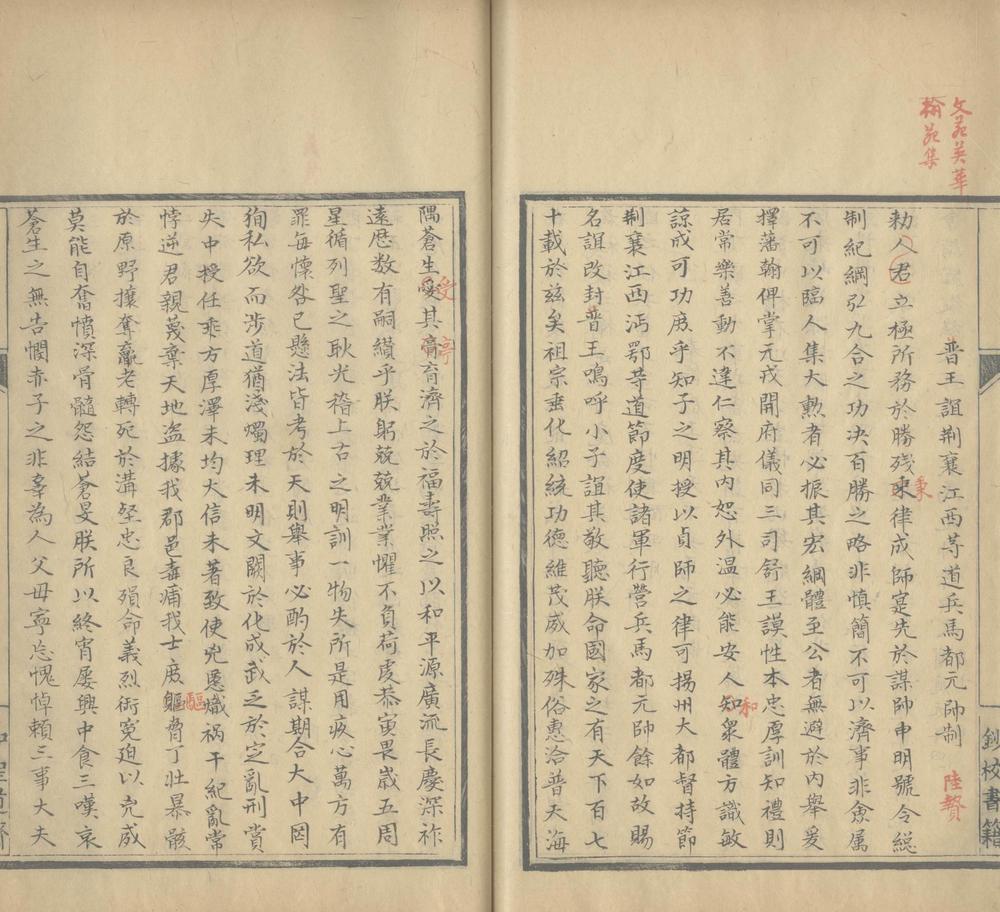 文苑英華
翰苑集
普王誼荆襄江西等道兵馬都元帥制
陸贄
勑人君立極所務於勝殘東律成師寔先於謀帥申明號令総
秉
制紀綱弘九合之功决百勝之略非慎簡不可以濟事非僉属
不可以臨人集大勲者必振其宏綱體至公者無避於内舉爰
擇藩翰俾掌元戎開府儀同三司舒王謨性本忠厚訓知禮則
居常樂善動不違仁察其内恕外温必能安人知衆體方識敏
和
諒成可功庶乎知子之明授以貞師之律可揚州大都督持節
荆襄江西沔鄂等道節度使諸軍行營兵馬都元帥餘如故賜
名誼改封普王嗚呼小子誼其敬聽朕命國家之有天下百七
十載於兹矣祖宗垂化紹統功德維茂威加殊俗惠洽普天海
鈔校書籍
隅蒼生愛其膏育濟之於福壽照之以和平源廣流長慶深祚
受
亭
遠厯数有嗣纘乎朕躬兢兢業業懼不負荷虔恭寅畏歳五周
星循列聖之耿光稽上古之明訓一物失所是用疚心萬方有
罪每懷咎已懸法皆考於天則舉事必酌於人謀期合大中罔
狥私欲而涉道猶淺燭理未明文闕於化成武乏於定亂刑賞
失中授任乖方厚澤未均大信未著致使兇慝熾禍干紀亂常
悖逆君親蔑棄天地盗據我郡邑毒痡我士庶軀脅丁壮暴骸
驅
於原野攘奪羸老轉死於溝壑忠良殞命義烈銜寃迫以兇威
莫能自奮憤深骨髓怨結蒼旻朕所以終宵屡興中食三嘆哀
蒼生之無告憫赤子之非辜為人父毋寧忘愧悼頼三事大夫